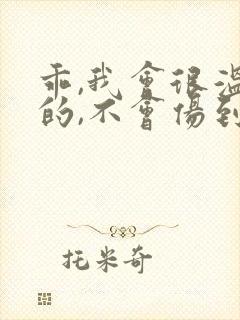 乖,我會很溫
的,不會傷到
托米奇